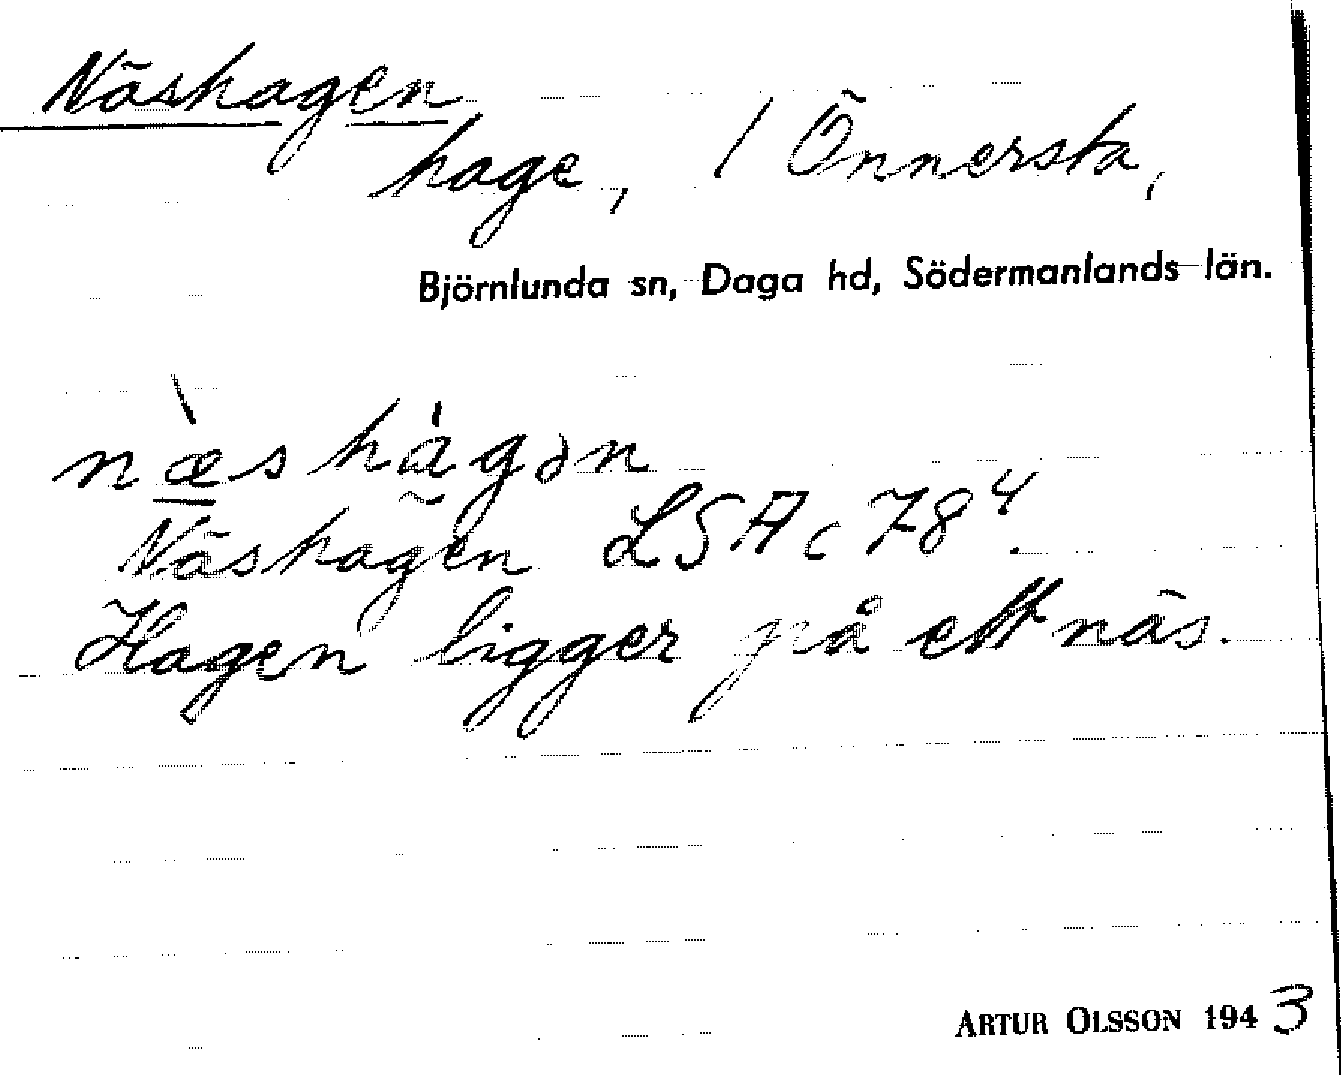 Näshagen
hage, / Önnersta,
Björnlunda sn, Daga hd, Södermanlands län.
næ̀shágən
Näshagen LSA c 78⁴.
Hagen ligger på ett näs.
ARTUR OLSSON 1943